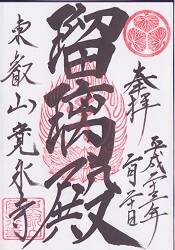 奉拝
平成二十三年
二月二十日
瑠璃殿
東叡山寛永寺